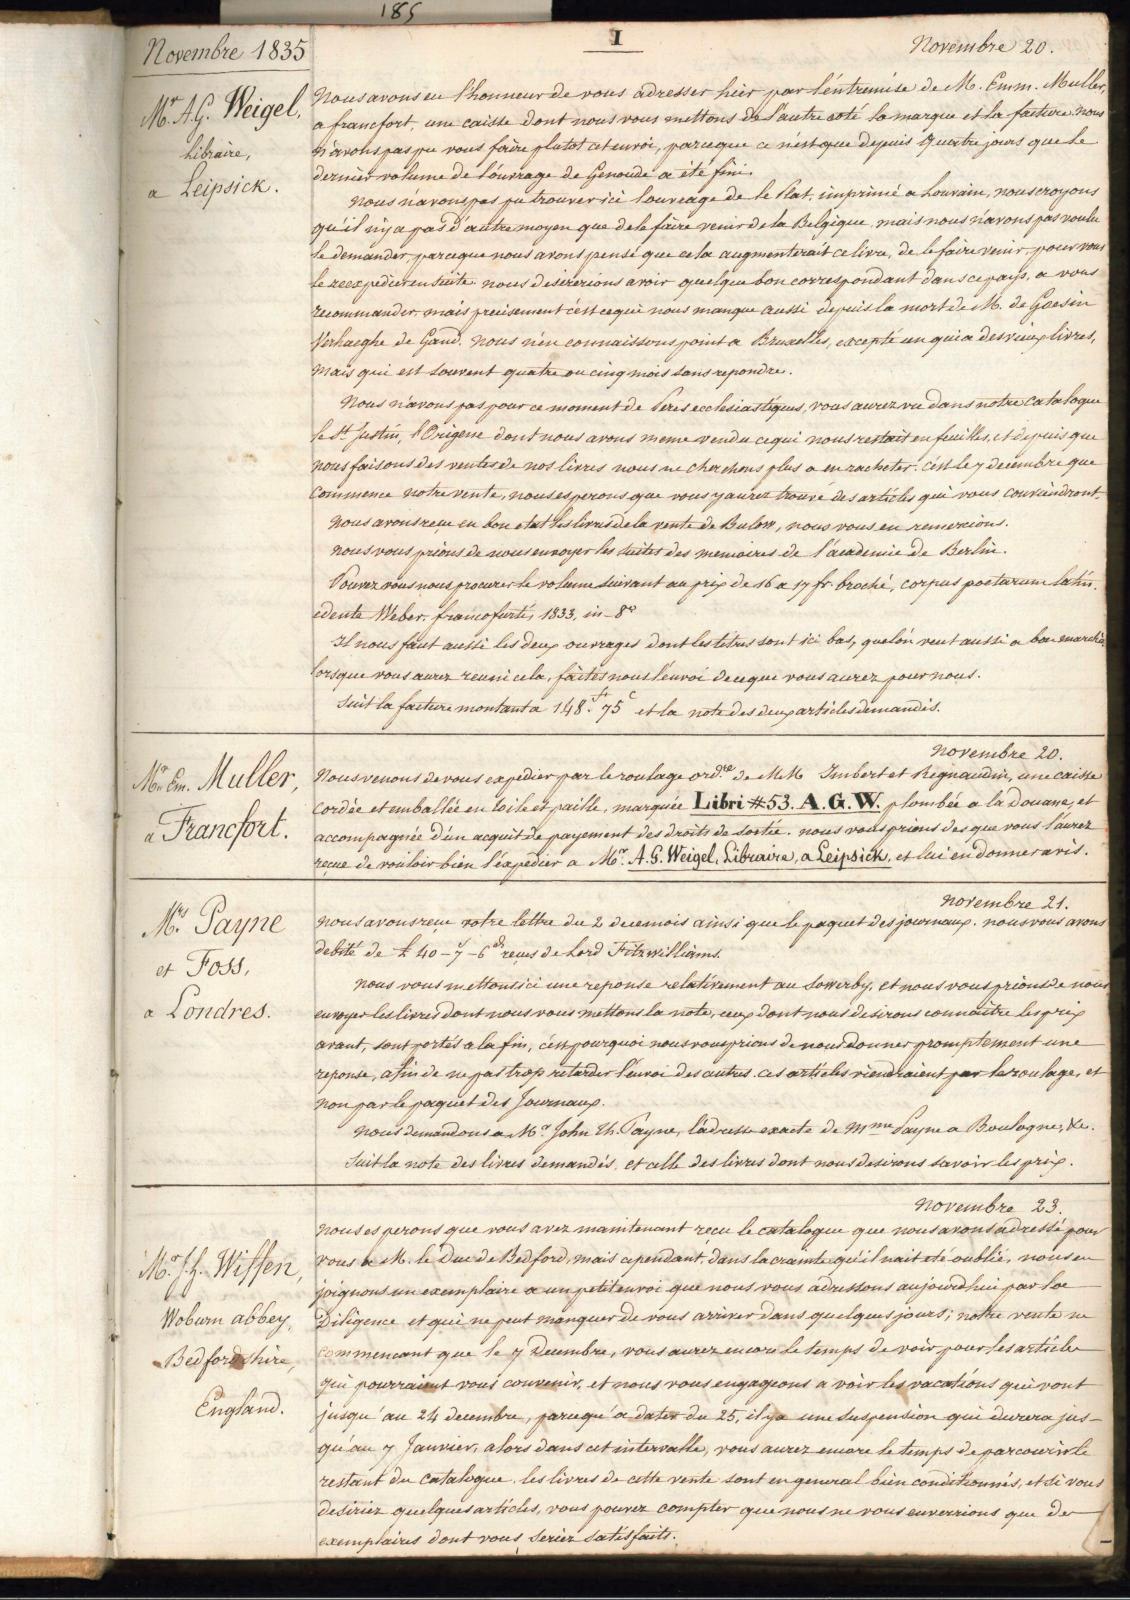 185
Novembre 1835
I
Novembre 20.
Mr. A.G. Weigel,
Libraire,
a Leipsick.
Nous avons eu l'honneur de vous adresser hier par l'entremise de M. Emm. Muller,
a francfort, une caisse dont nous vous mettons de l'autre coté la marque et la facture. nous
n'avons pas pu vous faire plutot cet envoi, parceque ce n'est que depuis quatre jours que le
dernier volume de l'ouvrage de Genoude a été fini.
Nous n'avons pas pu trouver ici l'ouvrage de le Plat, imprimé a Louvain, nous croyons
qu'il n'y a pas d'autre moyen que de le faire venir de la Belgique, mais nous n'avons pas voulu
le demander, parceque nous avons pensé que cela augmenterait ce livre, de le faire venir, pour vous
le reexpedier ensuite. nous desirerions avoir quelque bon correspondant dans ce pays, a vous
recommander, mais precisement c'est ce qui nous manque aussi depuis la mort de M. de Goesin
Verhaeghe de Gand. Nous n'en connaissons point a Bruxelles, excepté un qui a des vieux livres,
mais qui est souvent quatre ou cinq mois sans repondre.
Nous n'avons pas pour ce moment de Peres ecclesiastiques, vous aurez vu dans notre catalogue
le St. Justin, l'Origene dont nous avons meme vendu ce qui nous restait en feuilles, et depuis que
nous faisons des ventes de nos livres nous ne cherchons plus a en racheter. c'est le 7 decembre que
commence notre vente, nous esperons que vous y aurez trouvé des articles qui vous conviendront.
Nous avons reçu en bon etat les livres de la vente de Bulow, nous vous en remercions.
nous vous prions de nous envoyer les suites des memoires de l'academie de Berlin.
Pouvez vous nous procurer le volume suivant au prix de 16 a 17 fr. broché, corpus poetarum latin.
edente Weber, francofurti, 1833, in-8º
Il nous faut aussi les deux ouvrages dont les titres sont ici bas, que l'on veut aussi a bon marché
lorsque vous aurez reuni cela, faites nous l'envoi de ce que vous aurez pour nous.
Suit la facture montant a 148 fr. 75 c et la note des deux articles demandés.
Novembre 20.
Mr. Em. Muller,
a Francfort.
Nous venons de vous expedier par le roulage ordre de MM Imbert et Regnaudin, une caisse
Cordée et emballée en toile et paille, marquée Libri #53. A.G.W. plombée a la Douane, et
accompagnée d'un acquit de payement des droits de sortie. nous vous prions des que vous l'aurez
reçue de vouloir bien l'expedier a Mr. A.G. Weigel, Libraire, a Leipsick, et lui en donner avis.
novembre 21.
Mrs Payne
et Foss,
a Londres.
Nous avons reçu votre lettre du 2 de ce mois ainsi que le paquet des journaux. nous vous avons
debité de £ 40-7-6 reçues de Lord Fitzwilliams.
Nous vous mettons ici une reponse relativement au Sowerby, et nous vous prions de nous
envoyer les livres dont nous vous mettons la note, ceux dont nous desirons connaitre les prix
avant, sont portés a la fin, c'est pourquoi nous vous prions de nous donner promptement une
reponse, afin de ne pas trop retarder l'envoi des autres. ces articles viendraient par le roulage, et
non par le paquet des Journaux.
Nous demandons a Mr John Th. Payne, l'adresse exacte de Mme Payne a Boulogne, &c.
Suit la note des livres demandés, et celle des livres dont nous desirons savoir les prix.
Novembre 23.
Mr. J.H. Wiffen,
Woburn abbey,
Bedfordshire,
England.
Nous esperons que vous avez maintenant reçu le catalogue que nous avons adressé pour
vous a M. le Duc de Bedford, mais cependant, dans la crainte qu'il n'ait eté oublié, nous en
joignons un exemplaire a un petit envoi que nous vous adressons aujourd'hui par la
Diligence et qui ne peut manquer de vous arriver dans quelques jours; notre vente ne
commencant que le 7 Decembre, vous aurez encore le temps de voir pour les articles
qui pourraient vous convenir, et nous vous engageons a voir les vacations qui vont
jusqu'au 24 decembre, parcequ'a dater du 25, il y a une suspension qui durera jus-
qu'au 7 Janvier, alors dans cet intervalle, vous aurez encore le temps de parcourir le
restant du catalogue. les livres de cette vente sont en general bien conditionnés, et si vous
desiriez quelques articles, vous pouvez compter que nous ne vous enverrions que des
exemplaires dont vous seriez satisfaits.